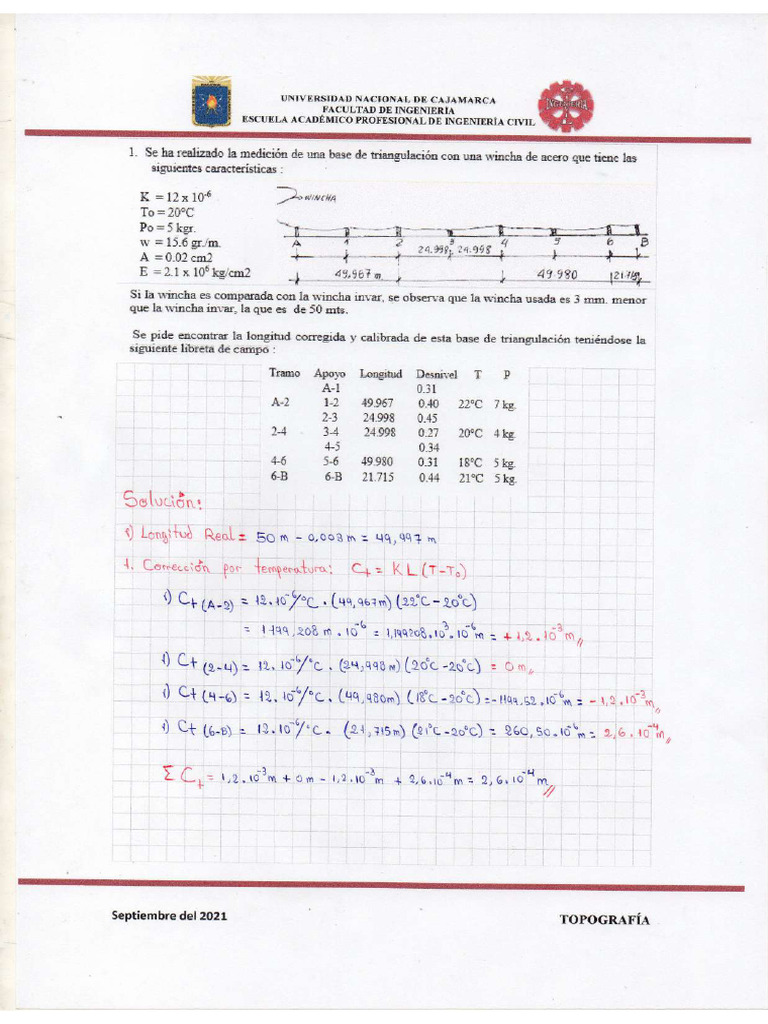 UNIVERSIDAD NACIONAL DE CAJAMARCA
FACULTAD DE INGENIERIA
ESCUELA ACADÉMICO PROFESIONAL DE INGENIERÍA CIVIL
INGENIERIA
1. Se ha realizado la medición de una base de triangulación con una wincha de acero que tiene las
siguientes características :
K = 12 x 10⁻⁶
To = 20°C
Po = 5 kgr.
w = 15.6 gr./m.
A = 0.02 cm2
E = 2.1 x 10⁶ kg/cm2
WINCHA
A 1 2 3 4 5 6 B
24.998 24.998
49,967 m 49.980 21.715
Si la wincha es comparada con la wincha invar, se observa que la wincha usada es 3 mm. menor
que la wincha invar, la que es de 50 mts.
Se pide encontrar la longitud corregida y calibrada de esta base de triangulación teniéndose la
siguiente libreta de campo :
Tramo Apoyo Longitud Desnivel T P
A-1 0.31
A-2 1-2 49.967 0.40 22°C 7 kg.
2-3 24.998 0.45
2-4 3-4 24.998 0.27 20°C 4 kg.
4-5 0.34
4-6 5-6 49.980 0.31 18°C 5 kg.
6-B 6-B 21.715 0.44 21°C 5 kg.
Solución:
i) Longitud Real = 50 m - 0,003 m = 49,997 m
1. Corrección por temperatura: C₊ = K L (T - T₀)
i) C₊ (A-2) = 12.10⁻⁶/°C . (49,967m) (22°C - 20°C)
= 1199,208 m . 10⁻⁶ = 1,199208.10³.10⁻⁶ m = + 1,2.10⁻³ m//
i) C₊ (2-4) = 12.10⁻⁶/°C . (24,998m) (20°C - 20°C) = 0 m//
i) C₊ (4-6) = 12.10⁻⁶/°C . (49,980m) (18°C - 20°C) = -1199,52.10⁻⁶ m = - 1,2.10⁻³ m//
i) C₊ (6-B) = 12.10⁻⁶/°C . (21,715m) (21°C - 20°C) = 260,50.10⁻⁶ m = 2,6.10⁻⁴ m//
Σ C₊ = 1,2.10⁻³ m + 0 m - 1,2.10⁻³ m + 2,6.10⁻⁴ m = 2,6.10⁻⁴ m//
Septiembre del 2021
TOPOGRAFÍA